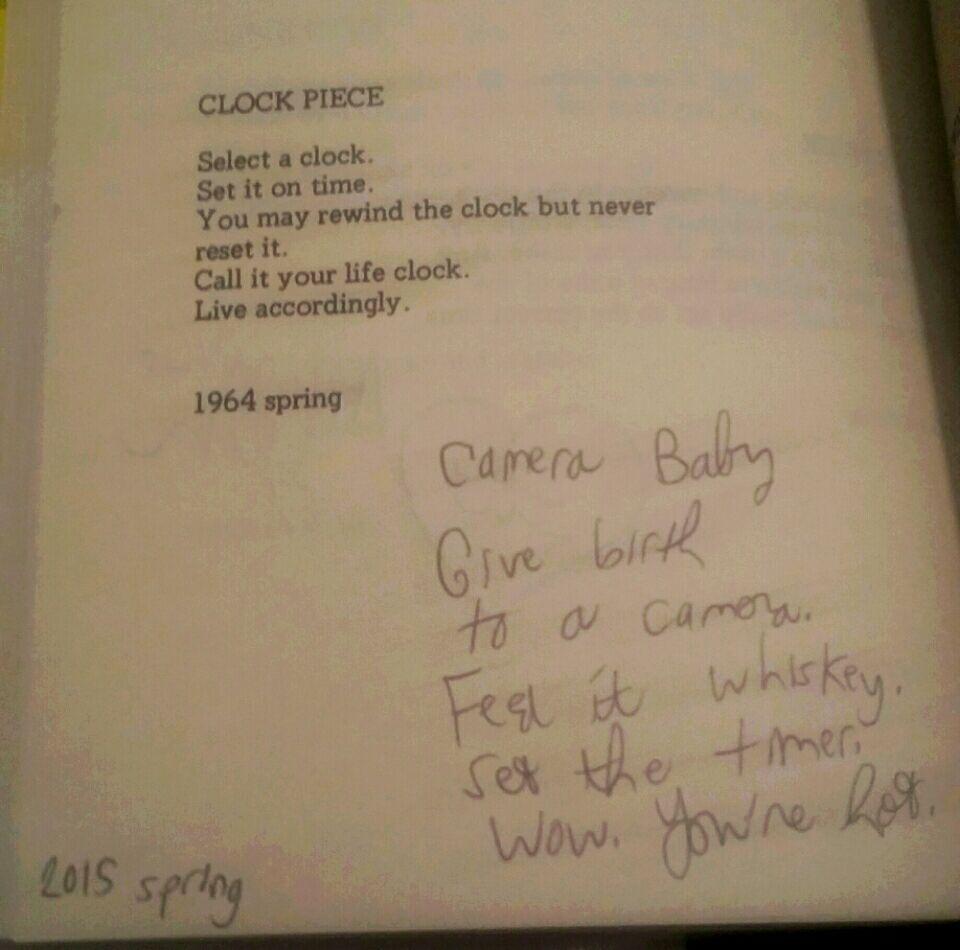 CLOCK PIECE
Select a clock.
Set it on time.
You may rewind the clock but never
reset it.
Call it your life clock.
Live accordingly.
1964 spring
Camera Baby
Give birth
to a camera.
Feed it whiskey.
Set the timer.
Wow. You're hot.
2015 spring